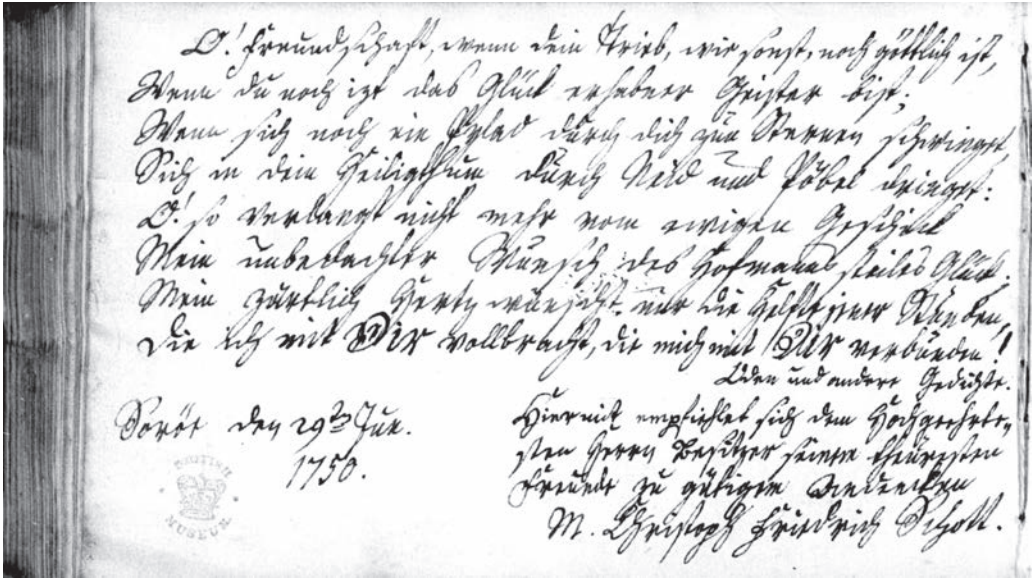 O! Freundschaft, wenn dein Trieb, wie sonst, noch göttlich ist,
Wenn du noch izt das Glück erhabner Geister bist;
Wenn sich noch ein Pylad durch dich zun Sternen schwinget,
Sich in dein Heiligthum durch Neid und Pöbel dringet:
O! so verlangt nicht mehr vom ewigen Geschick
Mein unbedachter Wunsch des Hofmanns steiles Glück,
Mein zärtlich Hertz wünscht nur die Helfte jener Stunden,
Die ich mit Dir vollbracht, die mich mit Dir verbunden!
Oden und andere Gedichte.
Soröe den 29ten Jun.
1750.
Hiermit empfiehlet sich dem Hochgeehrte-
sten Herrn Besitzer seinem theuresten
Freunde zu gütigem Andencken
M. Christoph Friedrich Schott.
BRITISH
MUSEUM